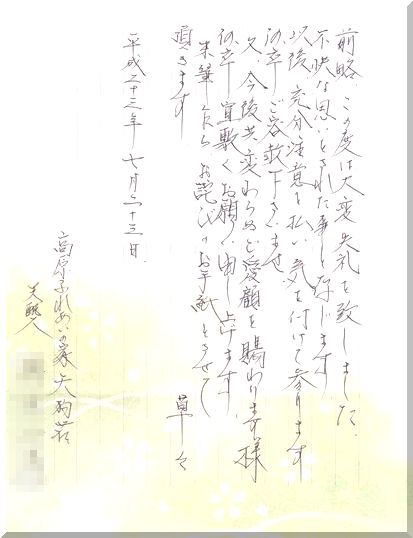 前略 この度は大変失礼を致しました
不快な思いをされた事と存じます
以後 充分注意を払い気を付けて参ります
何卒ご容赦下さいませ
又、今後共変わらぬご愛顧を賜わります様
何卒宜敷くお願い申し上げます
末筆乍らお詫びのお手紙とさせて
頂きます
草々
平成二十三年 七月二十三日
高原ふれあいの家天駒荘